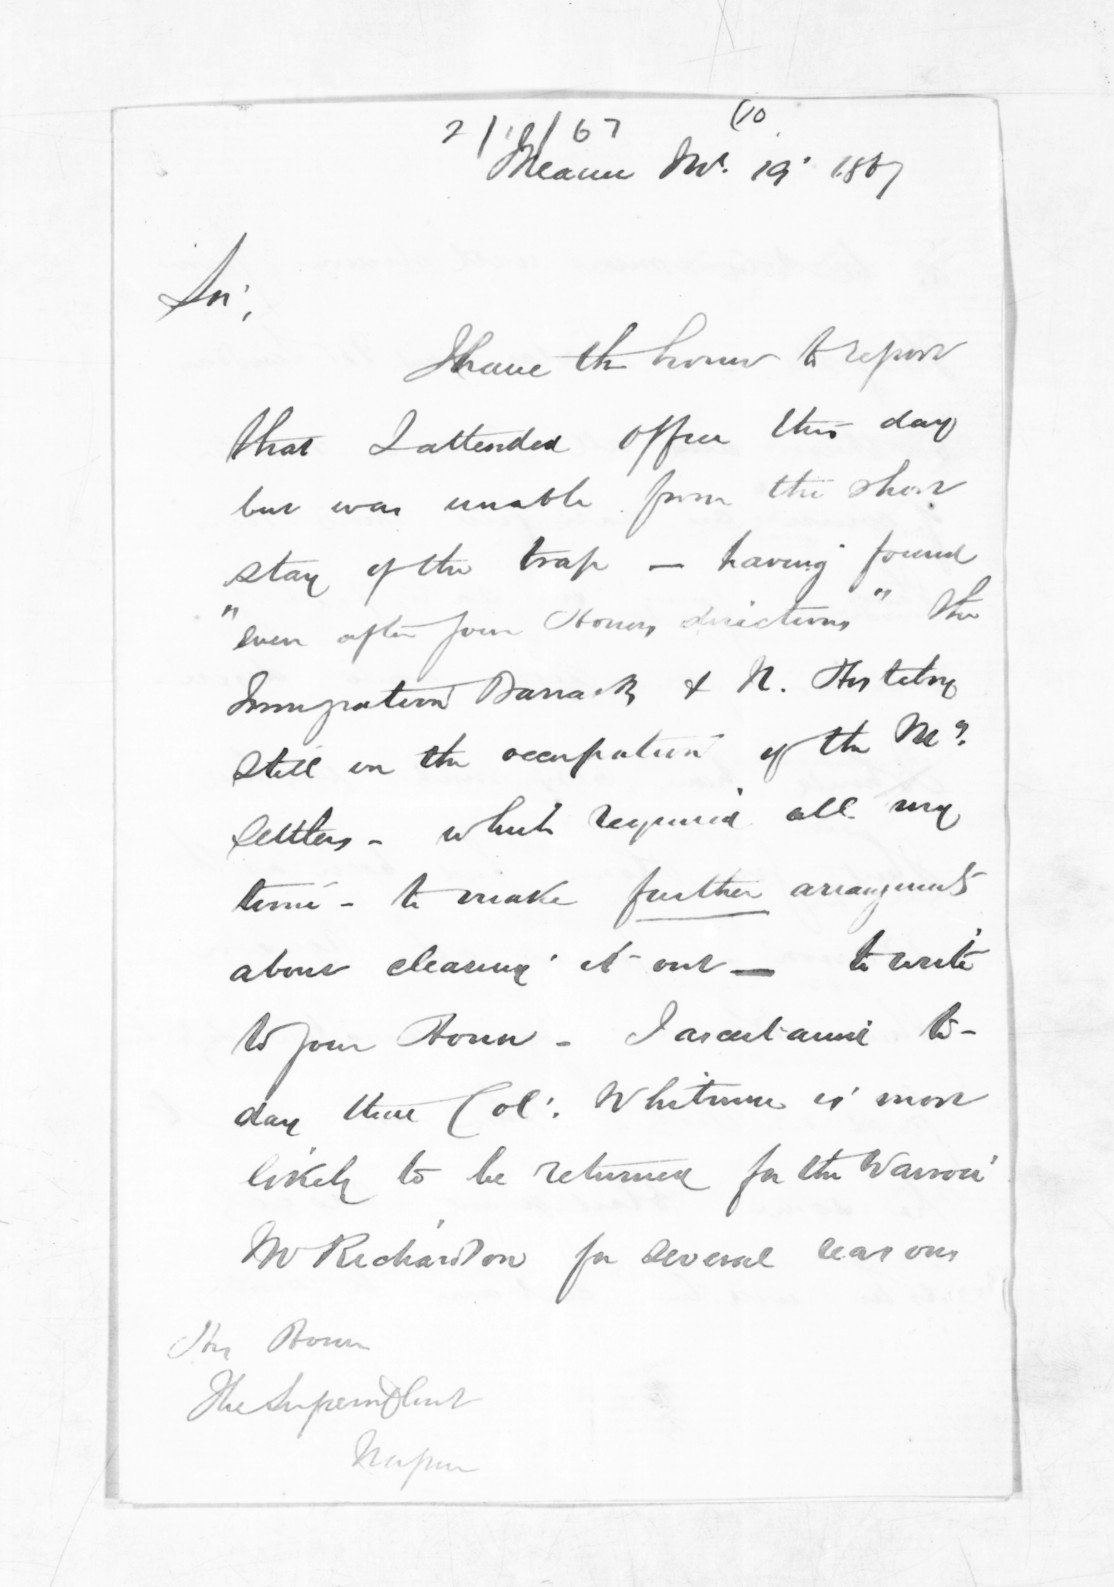 2/11/67 (10
Meanee Nov. 19' 1867
Sir,
I have the honor to report
that I attended office this day
but was unable from the short
stay of the trap — having found
"even after your Honors directions" the
Immigration Barrack & N. Hostelry
still in the occupation of the
settlers - which required all my
time - to make further arrangments
about clearing it out — to write
to your Honor - I ascertained to-
day that Col. Whitmore is most
likely to be returned for the Wairoa
Mr Richardson for several reasons
His Honor
The Superintendent
Napier